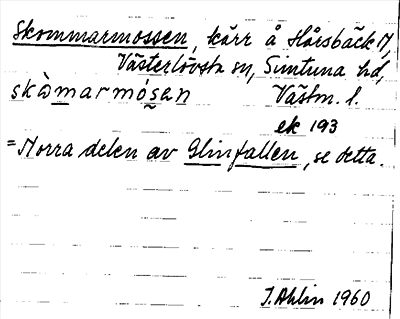 Skommarmossen, kärr å Hårsbäck 17,
Västerlövsta sn, Simtuna hd,
skåmarmósan Västm. l.
ek 193
= Norra delen av Glinfallen, se detta.
J. Ahlin 1960